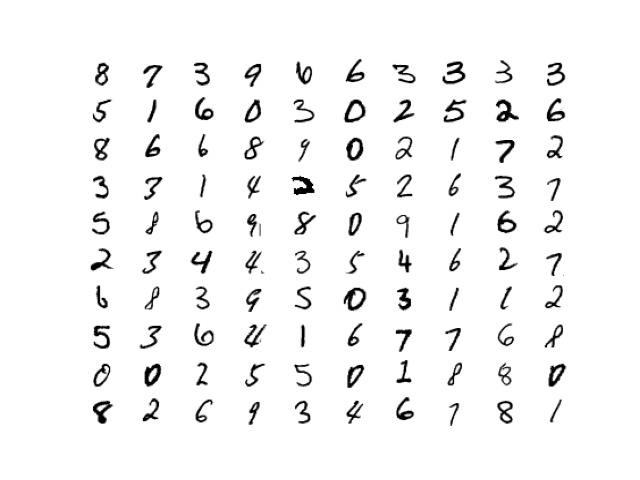 8 7 3 9 6 6 3 3 3 3
5 1 6 0 3 0 2 5 2 6
8 6 6 8 9 0 2 1 7 2
3 3 1 4 2 5 2 6 3 7
5 8 6 9 8 0 9 1 6 2
2 3 4 4 3 5 4 6 2 7
6 8 3 9 5 0 3 1 1 2
5 3 6 4 1 6 7 7 6 8
0 0 2 5 5 0 1 8 8 0
8 2 6 9 3 4 6 7 8 1